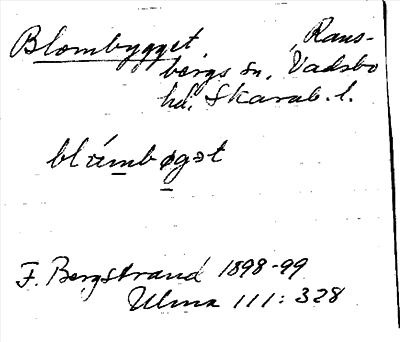 Blombygget, Rans-
bergs sn, Vadsbo
hd, Skarab. l.
blɷ́mbøgət
F. Bergstrand 1898-99
Ulma 111: 328